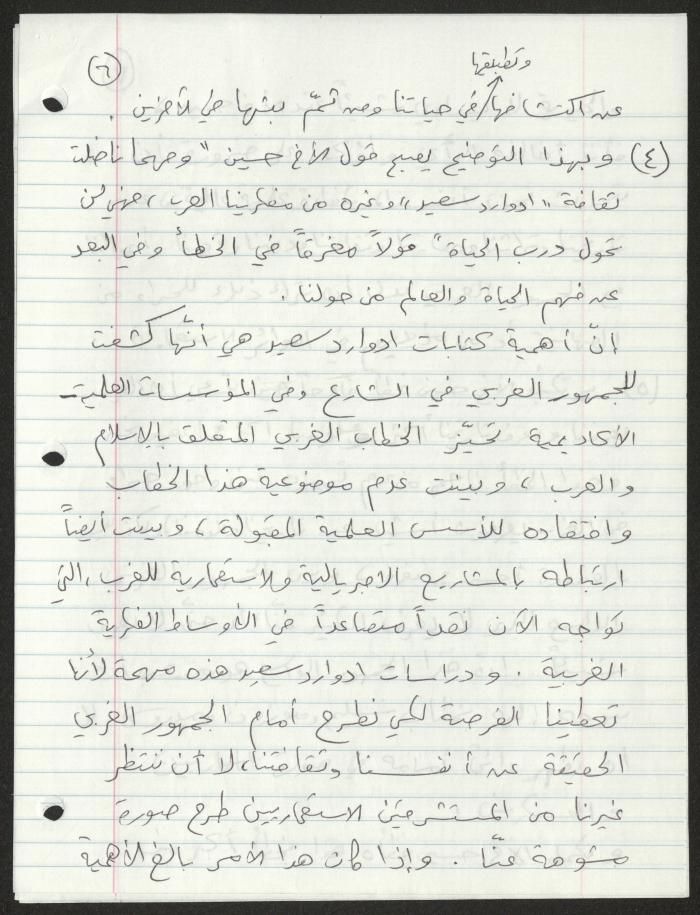 (٦)
وتطبيقها
عن اكتشافها / في حياتنا ومن ثمّ بثها على الآخرين .
(٤) وبهذا التوضيح يصبح قول الأخ حسين "ومهما ناضلت
ثقافة "ادوارد سعيد" وغيره من مفكرينا العرب ، فهي لن
تحول درب الحياة" قولاً مغرقاً في الخطأ وفي البعد
عن فهم الحياة والعالم من حولنا .
إنّ أهمية كتابات ادوارد سعيد هي أنّها كشفت
للجمهور الغربي في الشارع وفي المؤسسات العلمية -
الأكاديمية تحيّز الخطاب الغربي المتعلق بالإسلام
والعرب ، وبينت عدم موضوعية هذا الخطاب
وافتقاده للأسس العلمية المقبولة ، وبينت أيضاً
ارتباطه بالمشاريع الامبريالية والاستعمارية للغرب ، التي
تواجه الآن نقداً متصاعداً في الأوساط الفكرية
الغربية . ودراسات ادوارد سعيد هذه مهمة لأنها
تعطينا الفرصة لكي نطرح أمام الجمهور الغربي
الحقيقة عن أنفسنا وثقافتنا ، لا أن ننتظر
غيرنا من المستشرقين الاستعماريين طرح صورة
مشوهة عنّا . وإذا كان هذا الأمر بالغ الأهمية